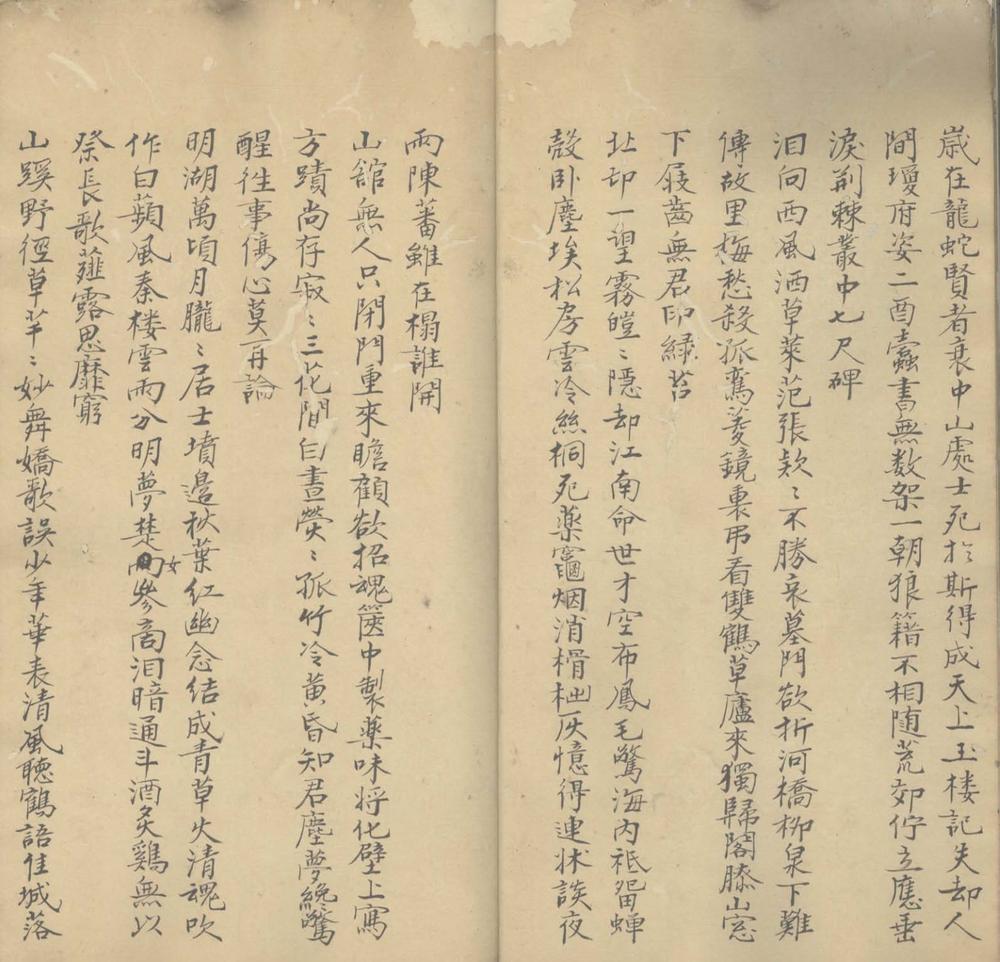 歲在龍蛇賢者衰中山處士死於斯得成天上玉楼記失却人
間瓊府姿二酉蠹書無数架一朝狼籍不相随荒郊佇立應垂
淚荆棘叢中七尺碑
泪向西風洒草萊范張欵〻不勝哀墓門欲折河橋柳泉下難
傳故里梅愁殺孤鸞菱鏡裏吊看雙鶴草廬來獨歸閣膝山窓
下屐齒無君印綠苔
北邙一望霧皚〻隱却江南命世才空布鳳毛驚海内袛留蟬
殼卧塵埃松房雲冷絲桐死藥竈烟消榾柮灰憶得連牀談夜
雨陳蕃雖在榻誰開
山舘無人只閉門重來瞻顧欲招魂篋中製藥味将化壁上寫
方蹟尚存寂〻三花間白晝熒〻孤竹冷黄昏知君塵夢纔驚
醒徃事傷心莫再論
明湖萬頃月朧〻居士墳邉秋葉紅幽念結成青草火清魂吹
作白蘋風秦楼雲雨分明夢楚女參商泪暗通斗酒炙鷄無以
祭長歌薤露思靡窮
山蹊野徑草芊〻妙舞嬌歌誤少年華表清風聽鶴語佳城落